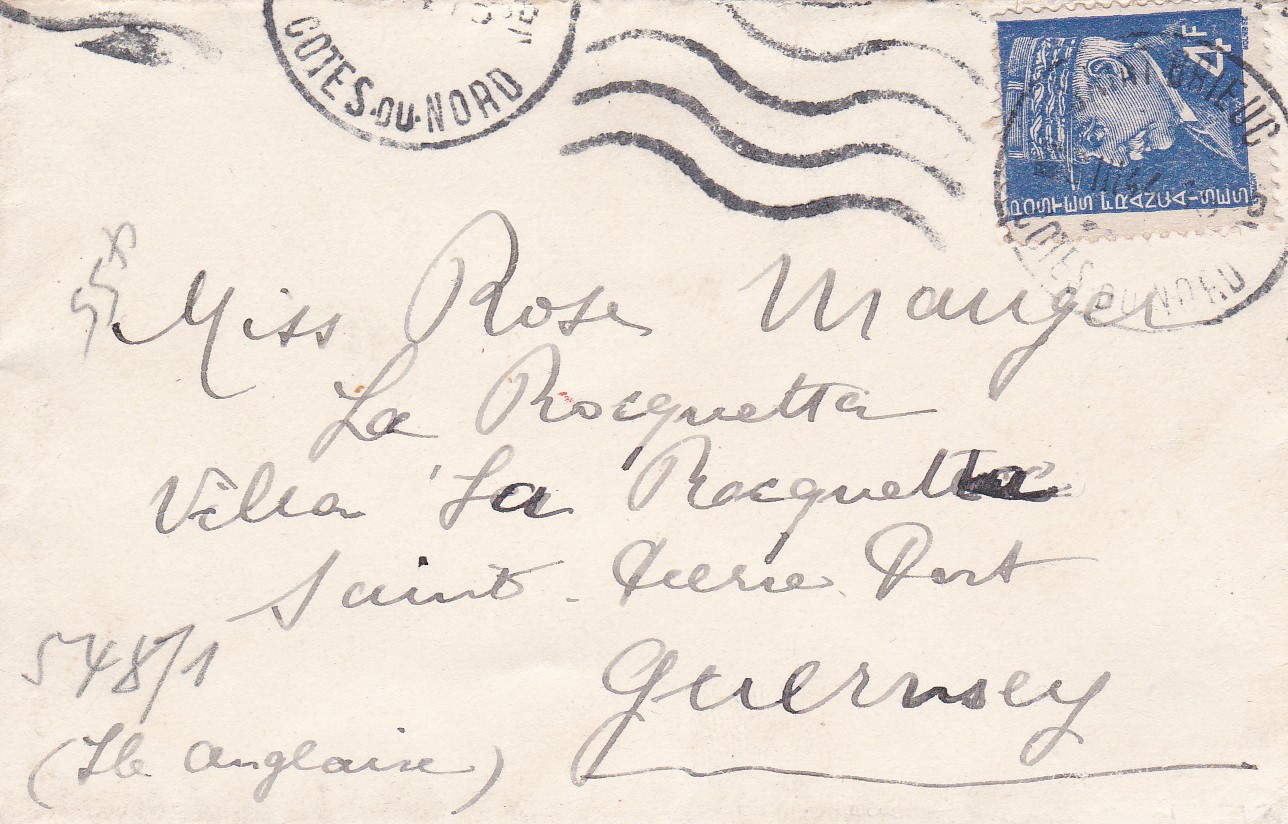 COTES·DU·NORD
4F
POSTES FRANCAISES
ST BRIEUC
COTES DU NORD
558
Miss Rose Mauger
La Rocquetta
Villa "La Rocquetta
Saint-Pierre Port
Guernsey
548/1
(Ile anglaise)